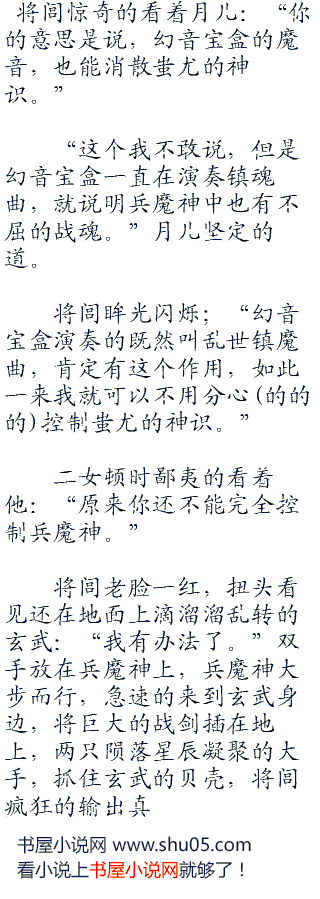 将闾惊奇的看着月儿：“你
的意思是说，幻音宝盒的魔
音，也能消散蚩尤的神
识。”
“这个我不敢说，但是
幻音宝盒一直在演奏镇魂
曲，就说明兵魔神中也有不
屈的战魂。”月儿坚定的
道。
将闾眸光闪烁；“幻音
宝盒演奏的既然叫乱世镇魔
曲，肯定有这个作用，如此
一来我就可以不用分心(的的
的)控制蚩尤的神识。”
二女顿时鄙夷的看着
他：“原来你还不能完全控
制兵魔神。”
将闾老脸一红，扭头看
见还在地面上滴溜溜乱转的
玄武：“我有办法了。”双
手放在兵魔神上，兵魔神大
步而行，急速的来到玄武身
边，将巨大的战剑插在地
上，两只陨落星辰凝聚的大
手，抓住玄武的贝壳，将闾
疯狂的输出真
书屋小说网 www.shu05.com
看小说上书屋小说网就够了！